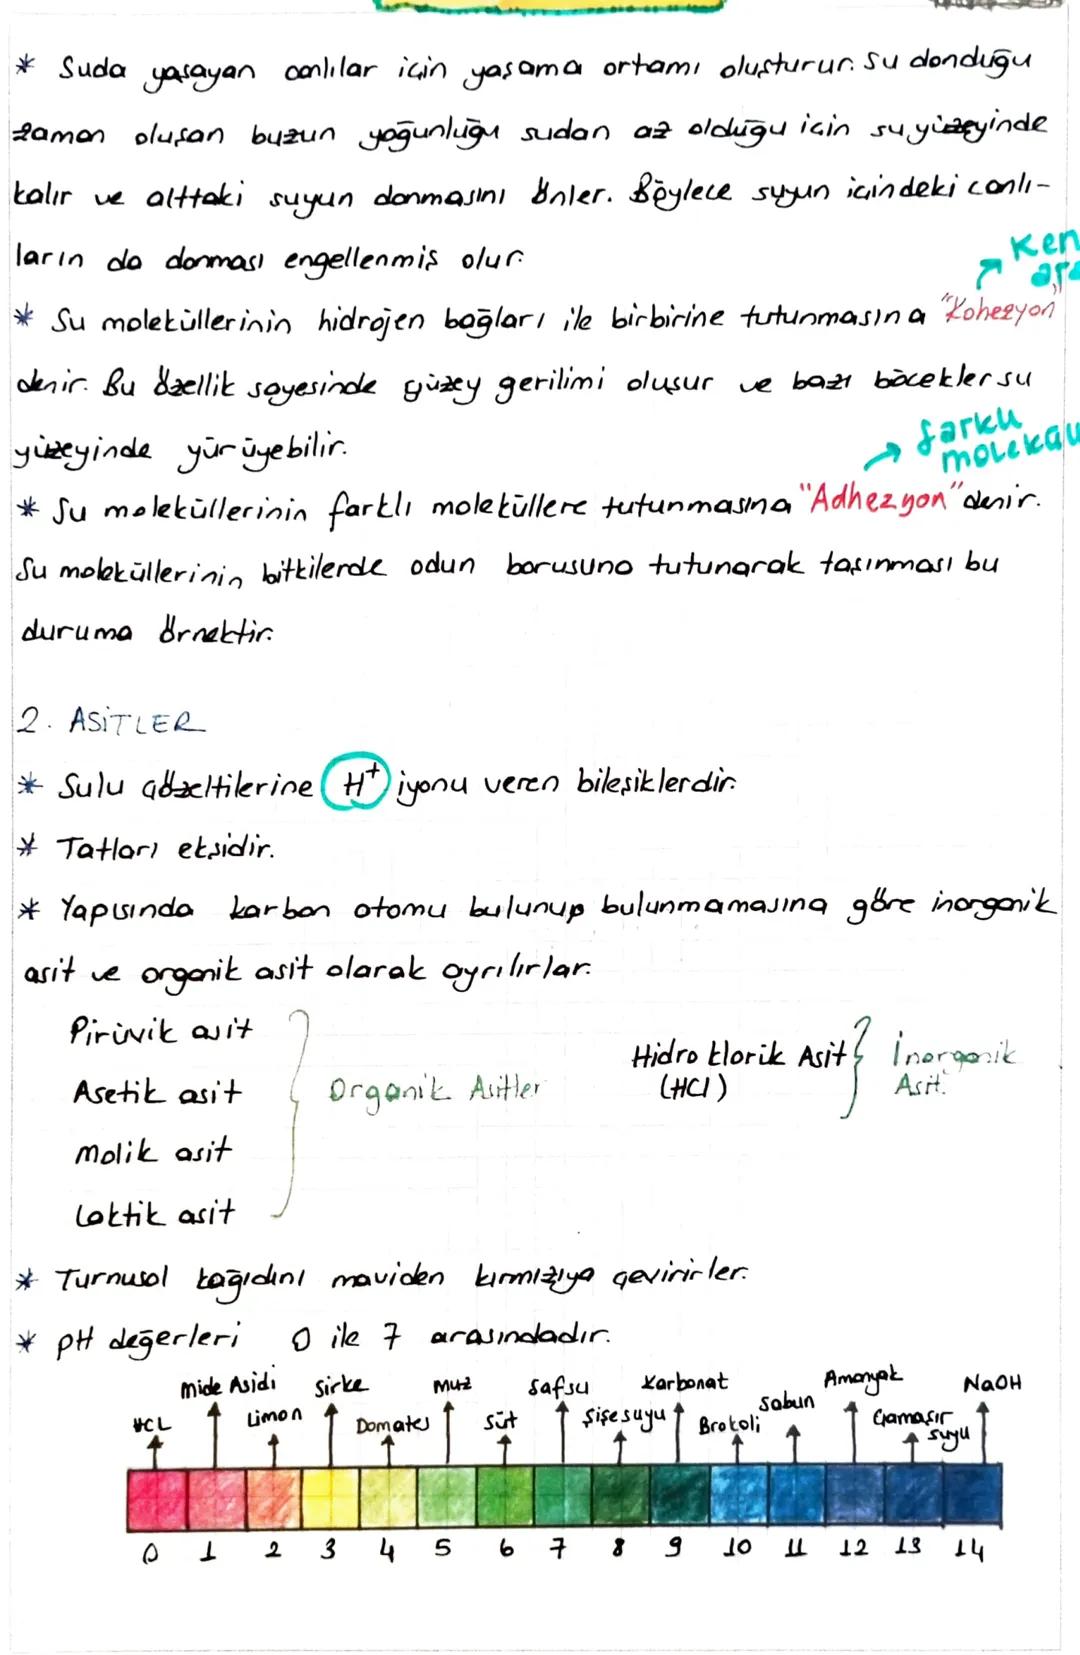 * Suda yaşayan canlılar için yaşama ortamı oluşturur. Su donduğu
zaman oluşan buzun yoğunluğu sudan az olduğu için su yüzeyinde
kalır ve alttaki suyun donmasını önler. Böylece suyun içindeki canlı-
ların da donması engellenmiş olur.
→ Ken
ara
* Su moleküllerinin hidrojen bağları ile birbirine tutunmasına "Kohezyon"
denir. Bu özellik sayesinde yüzey gerilimi oluşur ve bazı böcekler su
yüzeyinde yürüyebilir.
→ farklı
molekül
* Su moleküllerinin farklı moleküllere tutunmasına "Adhezyon" denir.
Su moleküllerinin bitkilerde odun borusuna tutunarak taşınması bu
duruma örnektir.
2. ASİTLER
* Sulu çözeltilerine H⁺ iyonu veren bileşiklerdir.
* Tatları ekşidir.
* Yapısında karbon atomu bulunup bulunmamasına göre inorganik
asit ve organik asit olarak ayrılırlar.
Pirüvik asit
Asetik asit
Malik asit
Laktik asit
Organik Asitler
Hidro klorik Asit
(HCl)
İnorganik
Asit.
* Turnusol kağıdını maviden kırmızıya çevirirler.
* pH değerleri 0 ile 7 arasındadır.
Mide Asidi Sirke Muz Safsu Karbonat Amonyak NaOH
HCL Limon Domates Süt Şişe suyu Brokoli Sabun Çamaşır
suyu
0 1 2 3 4 5 6 7 8 9 10 11 12 13 14